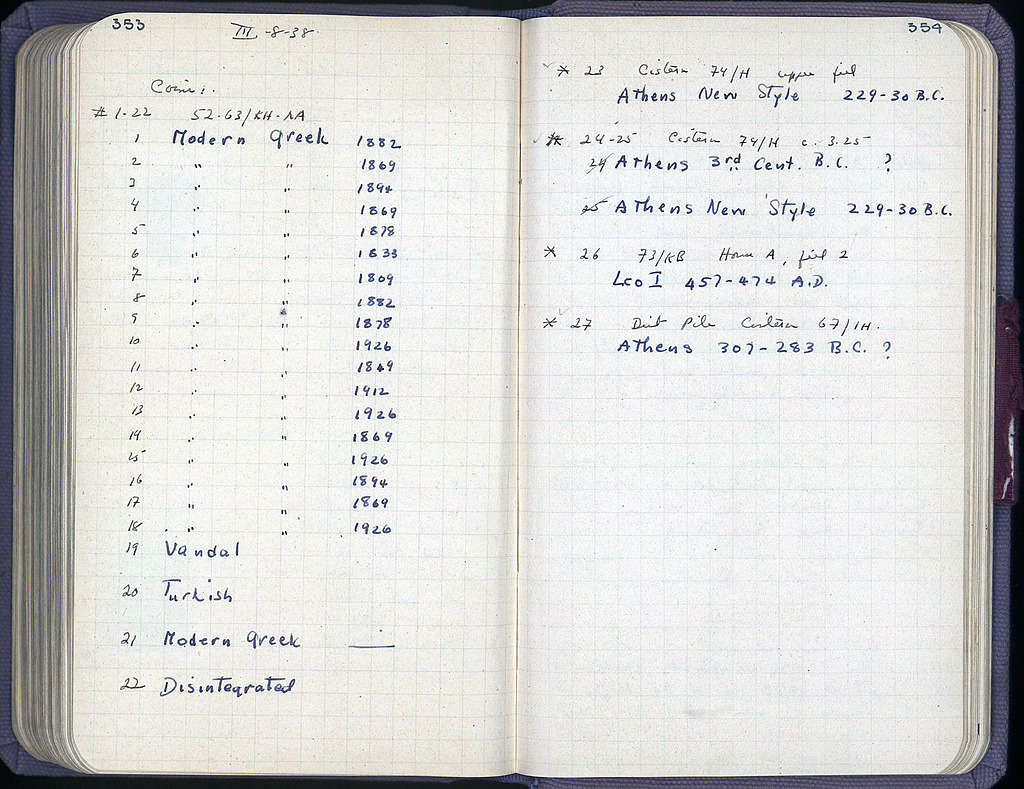 353
III-8-38
Coins:
# 1-22 52-63/KH-ΛA
1 Modern Greek 1882
2 " " 1869
3 " " 1894
4 " " 1869
5 " " 1878
6 " " 1833
7 " " 1809
8 " " 1882
9 " " 1878
10 " " 1926
11 " " 1849
12 " " 1912
13 " " 1926
14 " " 1869
15 " " 1926
16 " " 1894
17 " " 1869
18 " " 1926
19 Vandal
20 Turkish
21 Modern Greek —
22 Disintegrated
354
* 23 Cistern 74/H upper fill
Athens New Style 229-30 B.C.
* 24-25 Cistern 74/H c. 3.25
24 Athens 3rd Cent. B.C. ?
25 Athens New Style 229-30 B.C.
* 26 73/KB House A, fill 2
Leo I 457-474 A.D.
* 27 Dirt Pile Cistern 67/IH.
Athens 307-283 B.C. ?